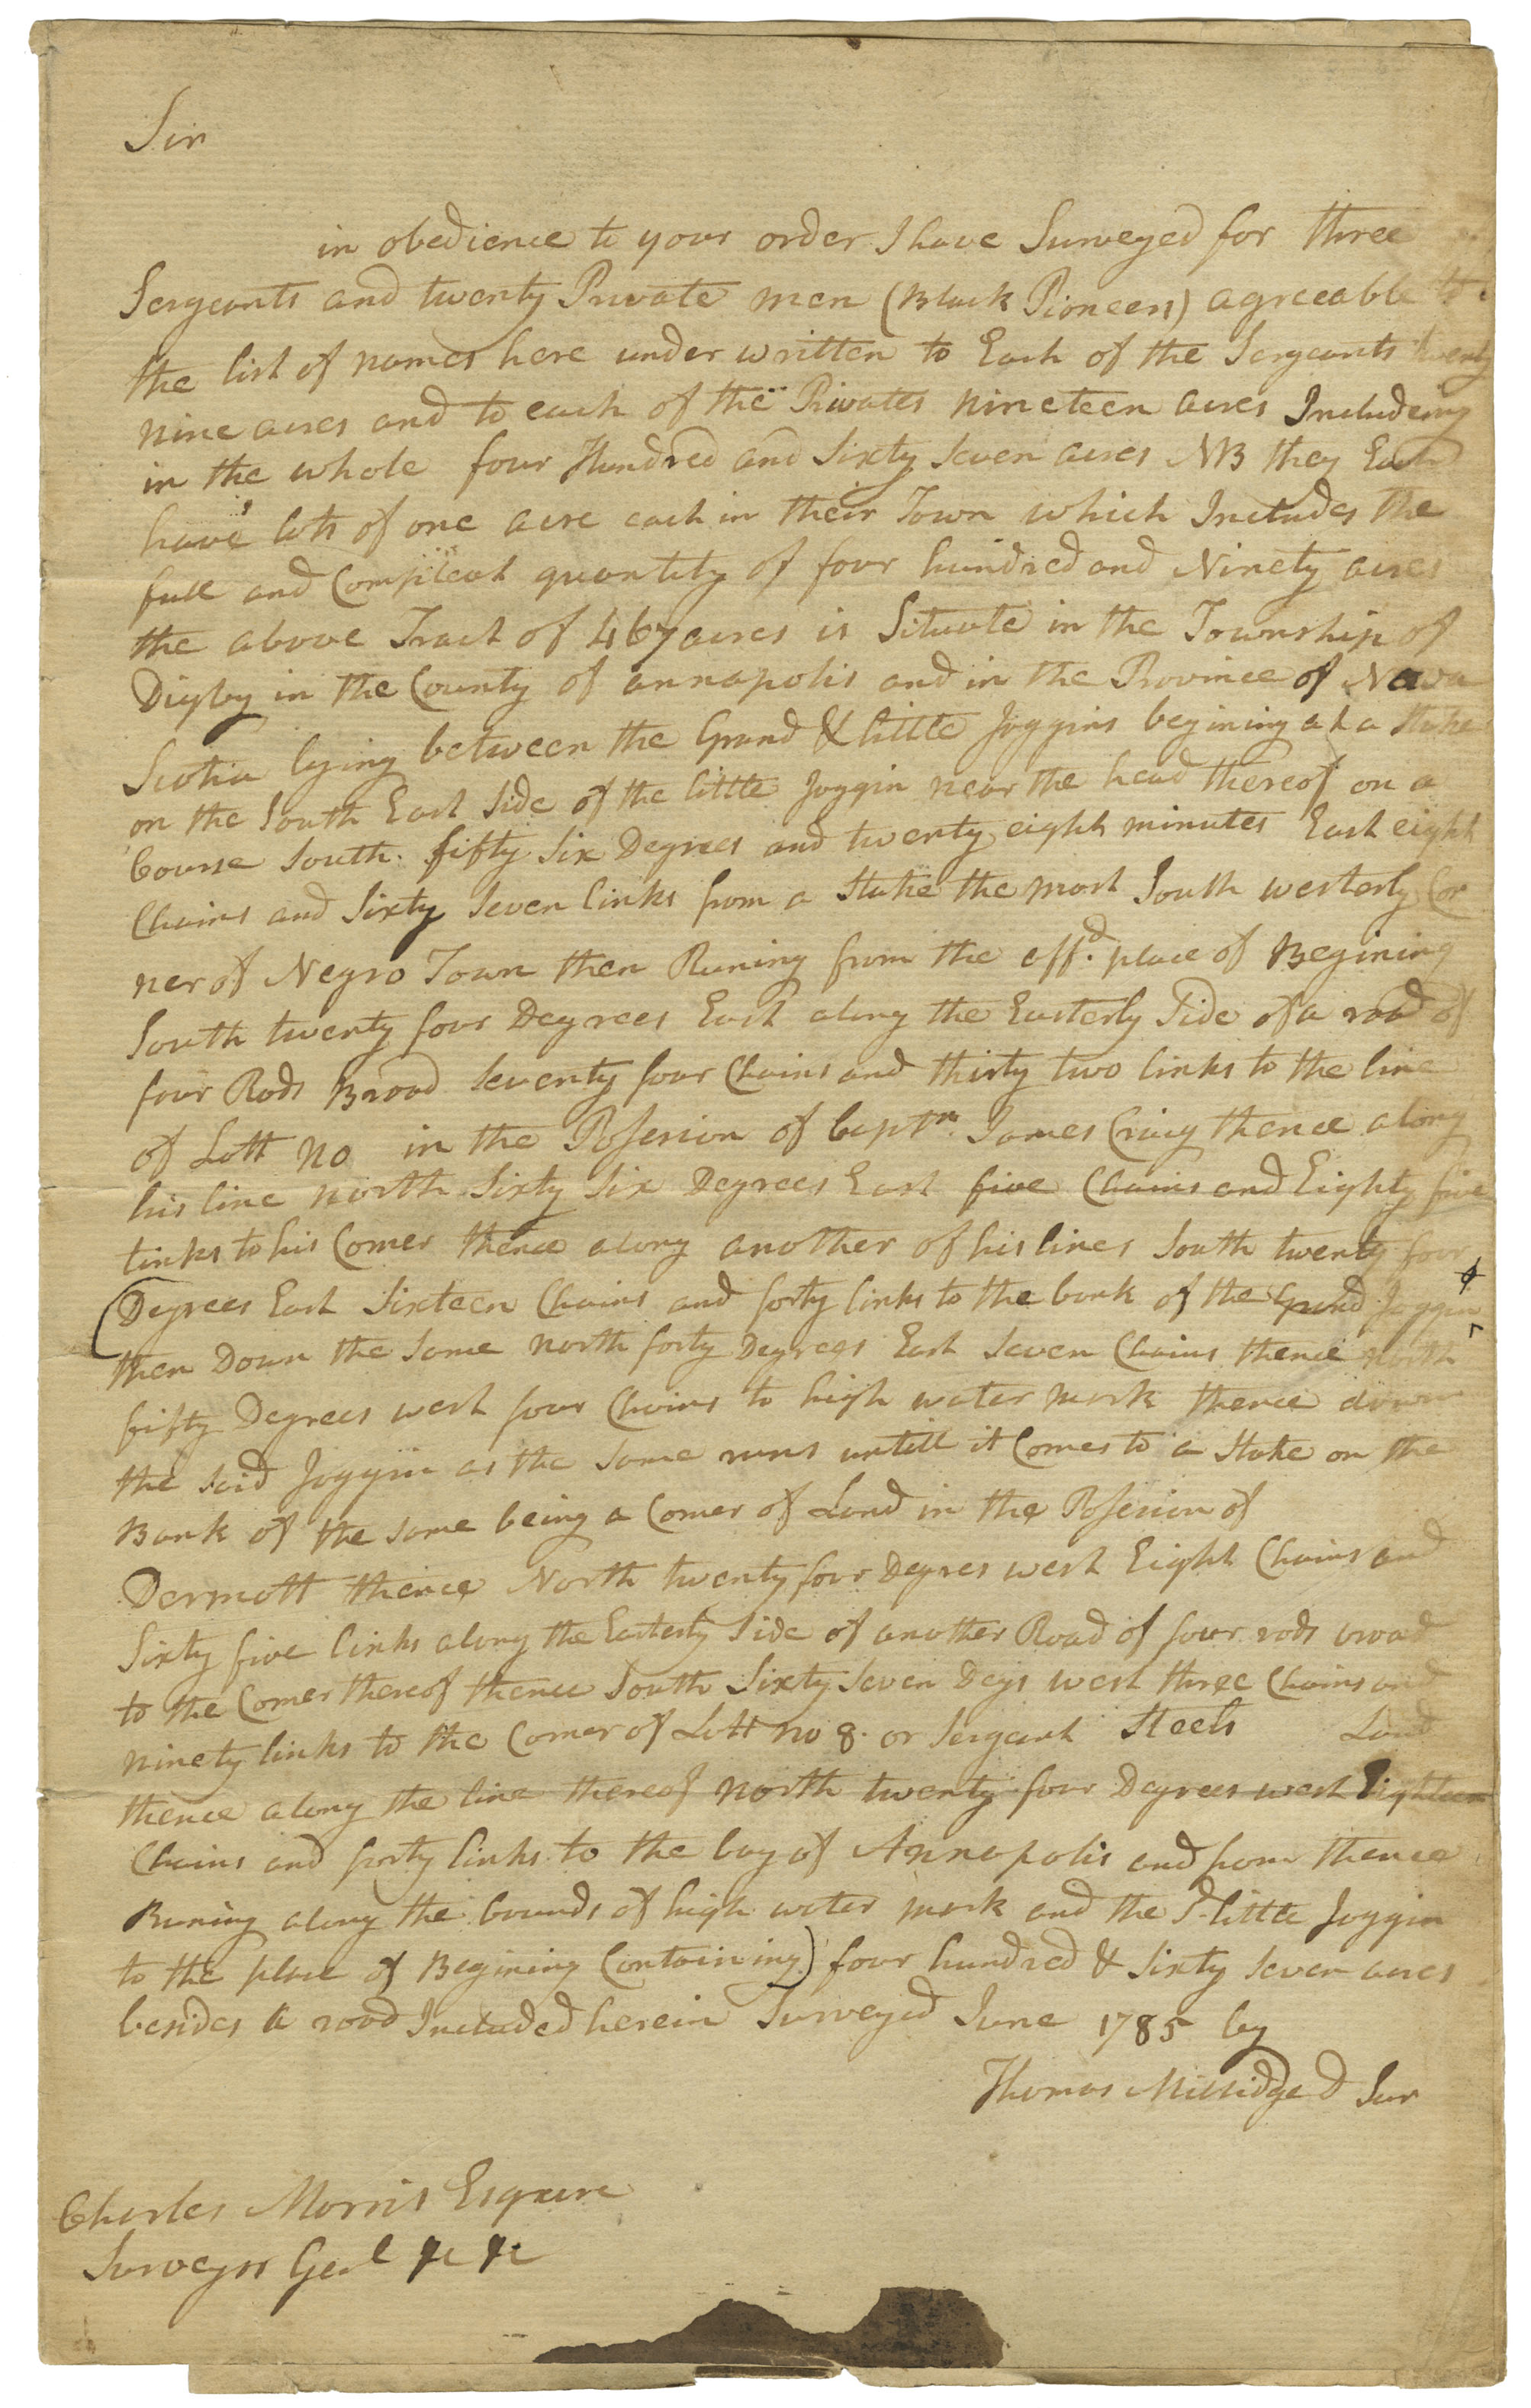 Sir
in obedience to your order I have Surveyed for three
Sergeants and twenty Private men (Black Pioneers) agreeable to
the list of names here under written to Each of the Sergeants twenty
nine acres and to each of the Privates nineteen acres Includeing
in the whole four Hundred and Sixty Seven acres NB they Each
have lots of one acre each in their Town which Includes the
full and Compleat quantity of four hundred and Ninety acres
the above Tract of 467 acres is Situate in the Township of
Digby in the County of annapolis and in the Province of Nova
Scotia lying between the Grand & little Joggins begining at a Stake
on the South East Side of the little Joggin near the head thereof on a
Course South fifty Six Degrees and twenty eight minutes East eight
Chains and Sixty Seven links from a Stake the most South westerly Cor
ner of Negro Town then Runing from the affd. place of Begining
South twenty four Degrees East along the Easterly Side of a road of
four Rods Broad Seventy four Chains and thirty two links to the line
of Lott No in the Possesion of Captn. James Craig thence along
his line north Sixty Six Degrees East five Chains and Eighty five
links to his Corner thence along another of his lines South twenty four
(Degrees East Sixteen Chains and forty links to the bank of the Grand Joggin
then Down the Same north forty Degrees East Seven Chains thence north
fifty Degrees west four Chains to high water mark thence down
the said Joggin as the Same runs untill it Comes to a Stake on the
Bank of the Same being a Corner of Land in the Possesion of
Dermott thence North twenty four Degres west Eight Chains and
Sixty five links along the Easterly Side of another Road of four rods broad
to the Corner thereof thence South Sixty Seven Degs west three Chains and
ninety links to the Corner of Lott no 8. or Sergeant Steels Land
thence along the line thereof north twenty four Degrees west Eighteen
Chains and forty links to the bay of Annapolis and from thence
Runing along the bounds of high water mark and the Sd little Joggin
to the place of Begining Containing) four hundred & Sixty Seven acres
besides a road Included herein Surveyed June 1785 by
Thomas Millidge D Sur
Charles Morris Esquire
Surveyr Genl &c &c